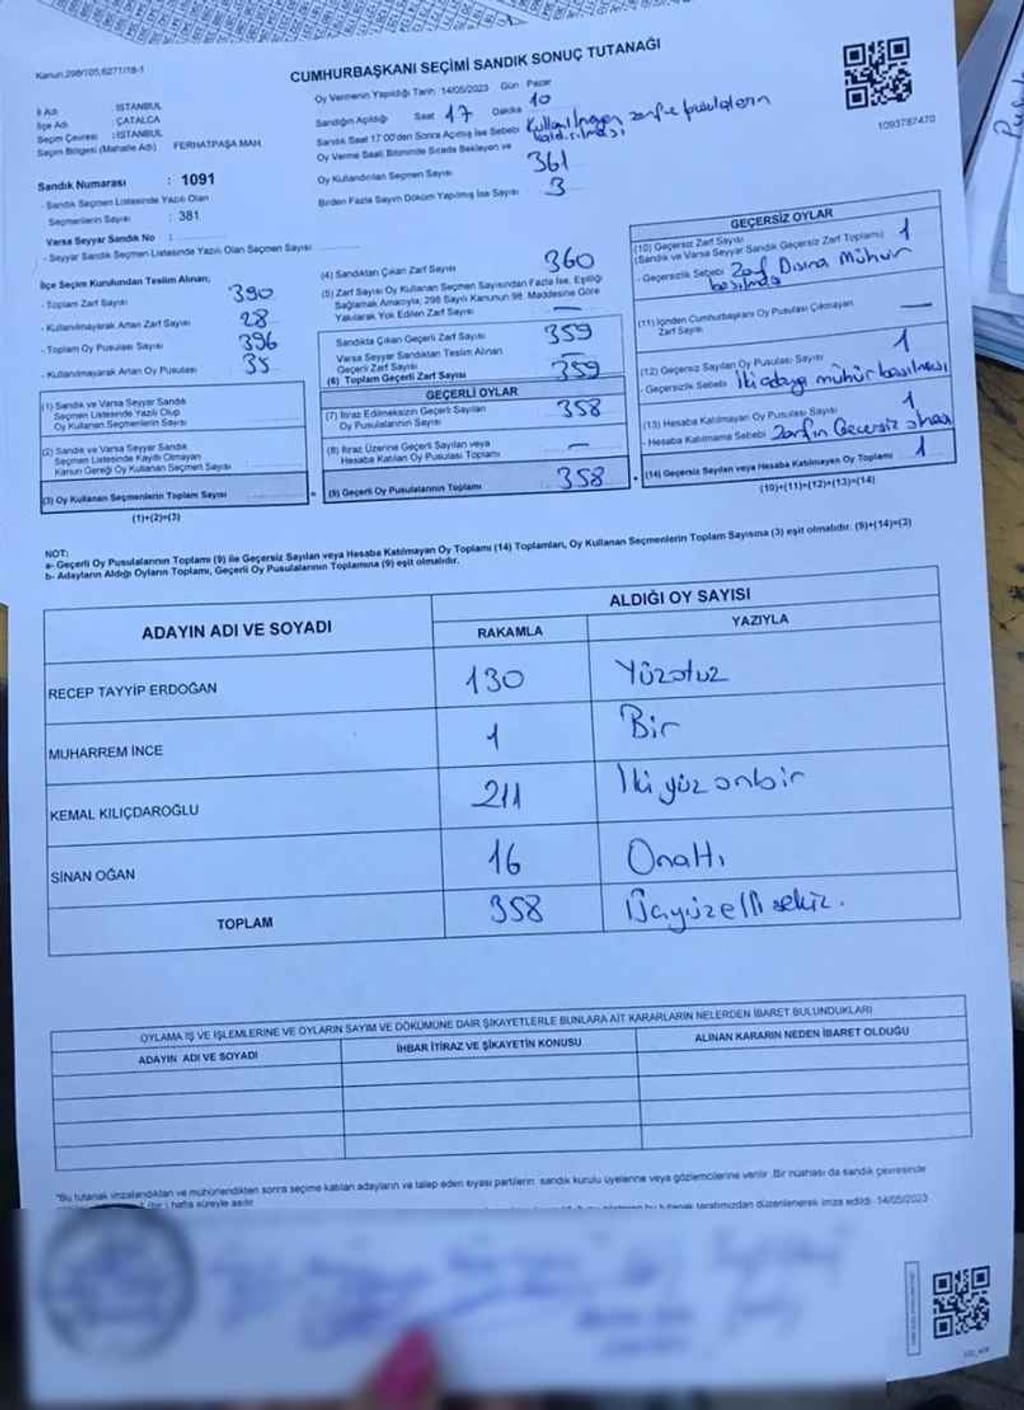 Kanun:298/105,6271/18-1
CUMHURBAŞKANI SEÇİMİ SANDIK SONUÇ TUTANAĞI
İl Adı : İSTANBUL
İlçe Adı : ÇATALCA
Seçim Çevresi : İSTANBUL
Seçim Bölgesi (Mahalle Adı) FERHATPAŞA MAH.
Sandık Numarası : 1091
- Sandık Seçmen Listesinde Yazılı Olan
Seçmenlerin Sayısı : 381
Varsa Seyyar Sandık No :
- Seyyar Sandık Seçmen Listesinde Yazılı Olan Seçmen Sayısı
Oy Vermenin Yapıldığı Tarih: 14/05/2023 Gün Pazar
Sandığın Açıldığı Saat 17 Dakika 10
Sandık Saat 17:00'den Sonra Açılmış İse Sebebi Kullanılmayan zarf ve pusulaların
Oy Verme Saati Bitiminde Sırada Bekleyen ve
Oy Kullandırılan Seçmen Sayısı 361
Birden Fazla Sayım Döküm Yapılmış İse Sayısı 3
1093787470
İlçe Seçim Kurulundan Teslim Alınan;
- Toplam Zarf Sayısı 390
- Kullanılmayarak Artan Zarf Sayısı 28
- Toplam Oy Pusulası Sayısı 396
- Kullanılmayarak Artan Oy Pusulası 35
(1) Sandık ve Varsa Seyyar Sandık
Seçmen Listesinde Yazılı Olup
Oy Kullanan Seçmenlerin Sayısı
(2) Sandık ve Varsa Seyyar Sandık
Seçmen Listesinde Kayıtlı Olmayan
Kanun Gereği Oy Kullanan Seçmen Sayısı
(3) Oy Kullanan Seçmenlerin Toplam Sayısı
(1)+(2)=(3)
(4) Sandıktan Çıkan Zarf Sayısı 360
(5) Zarf Sayısı Oy Kullanan Seçmen Sayısından Fazla İse, Eşitliği
Sağlamak Amacıyla, 298 Sayılı Kanunun 98. Maddesine Göre
Yakılarak Yok Edilen Zarf Sayısı —
Sandıkta Çıkan Geçerli Zarf Sayısı 359
Varsa Seyyar Sandıktan Teslim Alınan
Geçerli Zarf Sayısı —
(6) Toplam Geçerli Zarf Sayısı 359
GEÇERLİ OYLAR
(7) İtiraz Edilmeksizin Geçerli Sayılan
Oy Pusulalarının Sayısı 358
(8) İtiraz Üzerine Geçerli Sayılan veya
Hesaba Katılan Oy Pusulası Toplamı —
= (9) Geçerli Oy Pusulalarının Toplamı 358
GEÇERSİZ OYLAR
(10) Geçersiz Zarf Sayısı
(Sandık ve Varsa Seyyar Sandık Geçersiz Zarf Toplamı) 1
- Geçersizlik Sebebi Zarf Dışına Mühür
basılması
(11) İçinden Cumhurbaşkanı Oy Pusulası Çıkmayan
Zarf Sayısı —
(12) Geçersiz Sayılan Oy Pusulası Sayısı 1
- Geçersizlik Sebebi İki adaya mühür basılması
(13) Hesaba Katılmayan Oy Pusulası Sayısı 1
- Hesaba Katılmama Sebebi Zarfın Geçersiz olması
+ (14) Geçersiz Sayılan veya Hesaba Katılmayan Oy Toplamı 1
(10)+(11)+(12)+(13)=(14)
NOT:
a- Geçerli Oy Pusulalarının Toplamı (9) ile Geçersiz Sayılan veya Hesaba Katılmayan Oy Toplamı (14) Toplamları, Oy Kullanan Seçmenlerin Toplam Sayısına (3) eşit olmalıdır. (9)+(14)=(3)
b- Adayların Aldığı Oyların Toplamı, Geçerli Oy Pusulalarının Toplamına (9) eşit olmalıdır.
ADAYIN ADI VE SOYADI ALDIĞI OY SAYISI
RAKAMLA YAZIYLA
RECEP TAYYİP ERDOĞAN 130 Yüzotuz
MUHARREM İNCE 1 Bir
KEMAL KILIÇDAROĞLU 211 İki yüz onbir
SİNAN OĞAN 16 Onaltı
TOPLAM 358 Üçyüzelli sekiz.
OYLAMA İŞ VE İŞLEMLERİNE VE OYLARIN SAYIM VE DÖKÜMÜNE DAİR ŞİKAYETLERLE BUNLARA AİT KARARLARIN NELERDEN İBARET BULUNDUKLARI
ADAYIN ADI VE SOYADI İHBAR İTİRAZ VE ŞİKAYETİN KONUSU ALINAN KARARIN NEDEN İBARET OLDUĞU
"Bu tutanak imzalandıktan ve mühürlendikten sonra seçime katılan adayların ve talep eden siyasi partilerin sandık kurulu üyelerine veya gözlemcilerine verilir. Bir nüshası da sandık çevresinde
hafta süreyle asılır. bu tutanak tarafımızdan düzenlenerek imza edildi. 14/05/2023